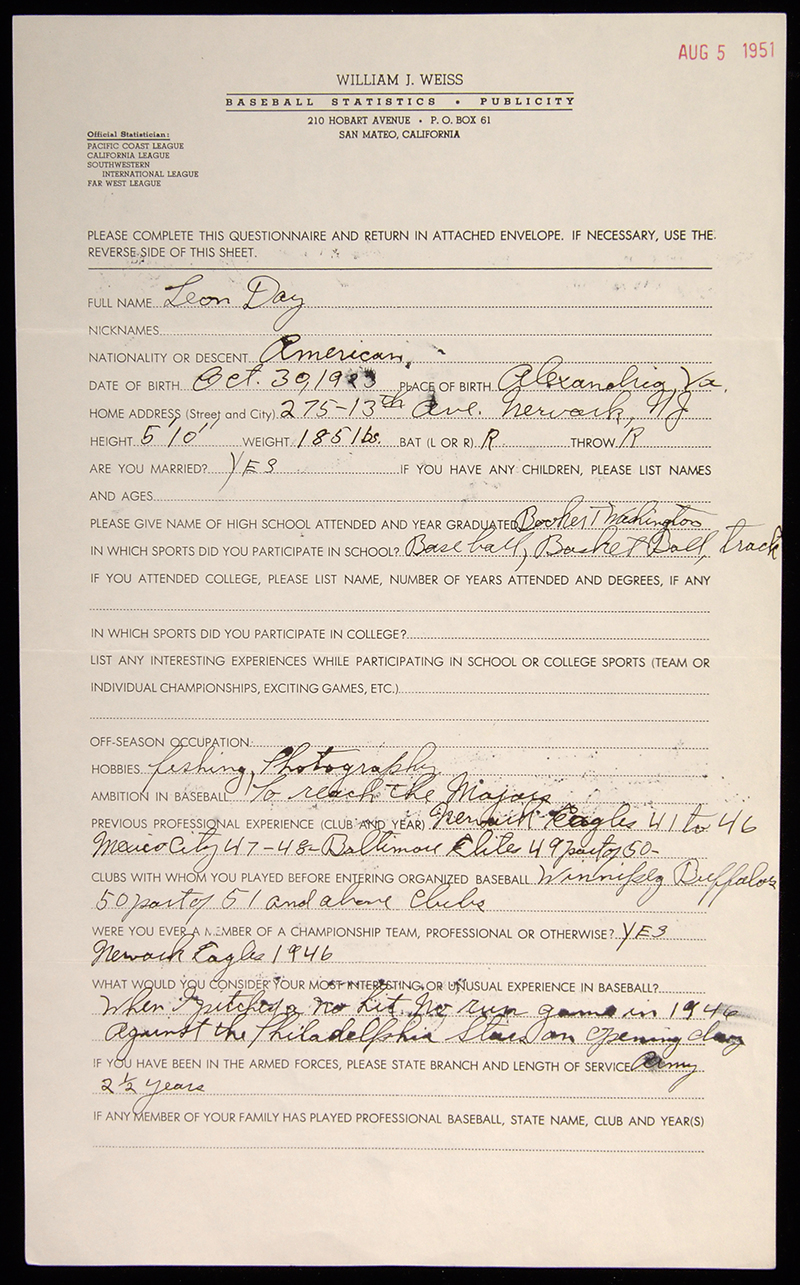 AUG 5 1951
WILLIAM J. WEISS
BASEBALL STATISTICS • PUBLICITY
210 HOBART AVENUE • P. O. BOX 61
SAN MATEO, CALIFORNIA
Official Statistician:
PACIFIC COAST LEAGUE
CALIFORNIA LEAGUE
SOUTHWESTERN
INTERNATIONAL LEAGUE
FAR WEST LEAGUE
PLEASE COMPLETE THIS QUESTIONNAIRE AND RETURN IN ATTACHED ENVELOPE. IF NECESSARY, USE THE
REVERSE SIDE OF THIS SHEET.
FULL NAME Leon Day
NICKNAMES
NATIONALITY OR DESCENT American
DATE OF BIRTH Oct. 30, 1923 PLACE OF BIRTH Alexandria, Va.
HOME ADDRESS (Street and City) 275-13th Ave. Newark, NJ
HEIGHT 5'10" WEIGHT 185 lbs. BAT (L OR R) R THROW R
ARE YOU MARRIED? YES IF YOU HAVE ANY CHILDREN, PLEASE LIST NAMES
AND AGES
PLEASE GIVE NAME OF HIGH SCHOOL ATTENDED AND YEAR GRADUATED Booker T Washington
IN WHICH SPORTS DID YOU PARTICIPATE IN SCHOOL? Baseball, Basket Ball, track
IF YOU ATTENDED COLLEGE, PLEASE LIST NAME, NUMBER OF YEARS ATTENDED AND DEGREES, IF ANY
IN WHICH SPORTS DID YOU PARTICIPATE IN COLLEGE?
LIST ANY INTERESTING EXPERIENCES WHILE PARTICIPATING IN SCHOOL OR COLLEGE SPORTS (TEAM OR
INDIVIDUAL CHAMPIONSHIPS, EXCITING GAMES, ETC.)
OFF-SEASON OCCUPATION
HOBBIES fishing, Photography
AMBITION IN BASEBALL To reach the Majors
PREVIOUS PROFESSIONAL EXPERIENCE (CLUB AND YEAR) Newark Eagles 41 to 46
Mexico City 47-48- Baltimore Elites 49 part of 50-
CLUBS WITH WHOM YOU PLAYED BEFORE ENTERING ORGANIZED BASEBALL Winnipeg Buffalos
50 part of 51 and above Clubs
WERE YOU EVER A MEMBER OF A CHAMPIONSHIP TEAM, PROFESSIONAL OR OTHERWISE? YES
Newark Eagles 1946
WHAT WOULD YOU CONSIDER YOUR MOST INTERESTING OR UNUSUAL EXPERIENCE IN BASEBALL?
When I pitched a no hit. No run game in 1946
against the Philadelphia Stars on opening day
IF YOU HAVE BEEN IN THE ARMED FORCES, PLEASE STATE BRANCH AND LENGTH OF SERVICE Army
2½ years
IF ANY MEMBER OF YOUR FAMILY HAS PLAYED PROFESSIONAL BASEBALL, STATE NAME, CLUB AND YEAR(S)